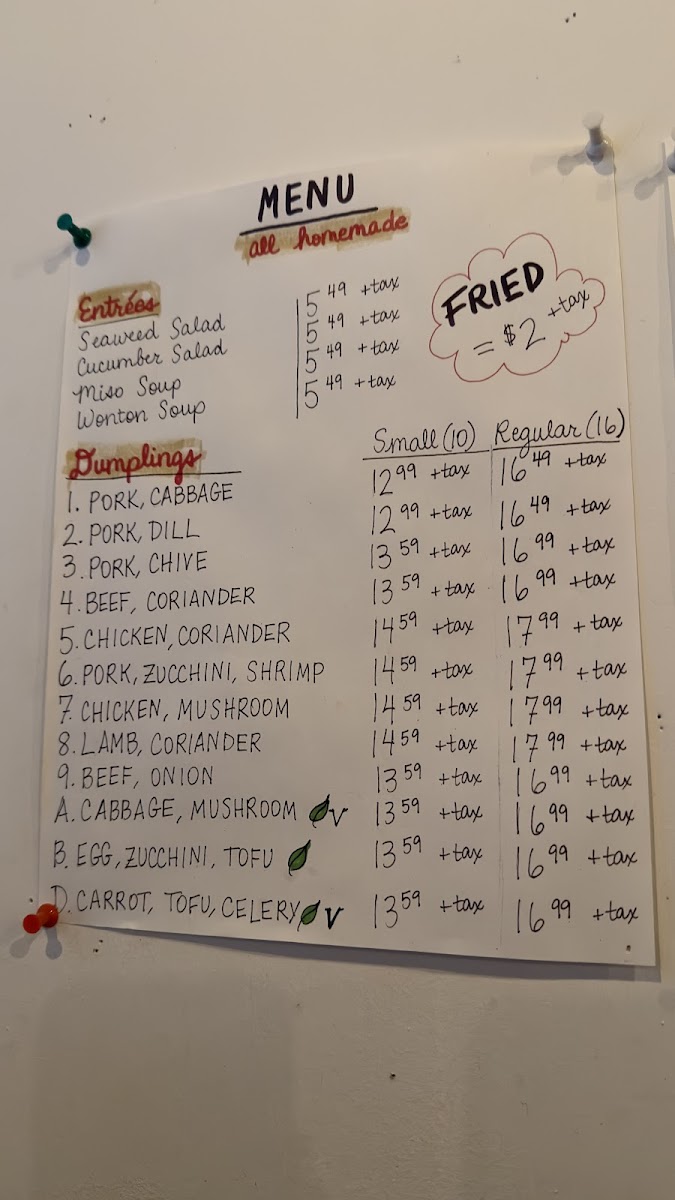 MENU
all homemade
Entrées
Seaweed Salad 5 49 +tax
Cucumber Salad 5 49 +tax
Miso Soup 5 49 +tax
Wonton Soup 5 49 +tax
FRIED
= $2 +tax
Dumplings Small (10) Regular (16)
1. PORK, CABBAGE 12 99 +tax 16 49 +tax
2. PORK, DILL 12 99 +tax 16 49 +tax
3. PORK, CHIVE 13 59 +tax 16 99 +tax
4. BEEF, CORIANDER 13 59 +tax 16 99 +tax
5. CHICKEN, CORIANDER 14 59 +tax 17 99 +tax
6. PORK, ZUCCHINI, SHRIMP 14 59 +tax 17 99 +tax
7. CHICKEN, MUSHROOM 14 59 +tax 17 99 +tax
8. LAMB, CORIANDER 14 59 +tax 17 99 +tax
9. BEEF, ONION 13 59 +tax 16 99 +tax
A. CABBAGE, MUSHROOM V 13 59 +tax 16 99 +tax
B. EGG, ZUCCHINI, TOFU 13 59 +tax 16 99 +tax
D. CARROT, TOFU, CELERY V 13 59 +tax 16 99 +tax